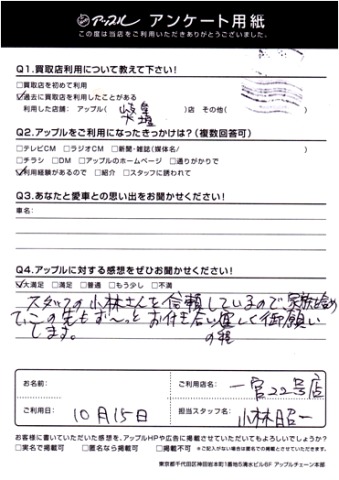 アップル アンケート用紙
この度は当店をご利用いただきありがとうございました。
Q1.買取店利用について教えて下さい!
□買取店を初めて利用
☑過去に買取店を利用したことがある
利用した店舗: アップル( 岐阜 )店 その他( )
Q2.アップルをご利用になったきっかけは?(複数回答可)
□テレビCM □ラジオCM □新聞・雑誌(媒体名/ )
□チラシ □DM □アップルのホームページ □通りがかりで
☑利用経験があるので □紹介 □スタッフに誘われて
Q3.あなたと愛車との思い出をお聞かせください!
車名:
Q4.アップルに対する感想をぜひお聞かせください!
☑大満足 □満足 □普通 □もう少し □不満
スタッフの小林さんを信頼しているので、家族含め
て、この先もず〜っとお付き合い宜しく御願い
の程
します。
お名前:
ご利用店名: 一宮22号店
ご利用日: 10月15日
担当スタッフ名: 小林昭一
お客様に書いていただいた感想を、アップルHPや広告に掲載させていただいてもよろしいでしょうか?
□実名で掲載可 □匿名なら掲載可 □掲載不可 ※ご記入がない場合は匿名での掲載とさせていただきます。
東京都千代田区神田岩本町1番地5清水ビル6F アップルチェーン本部